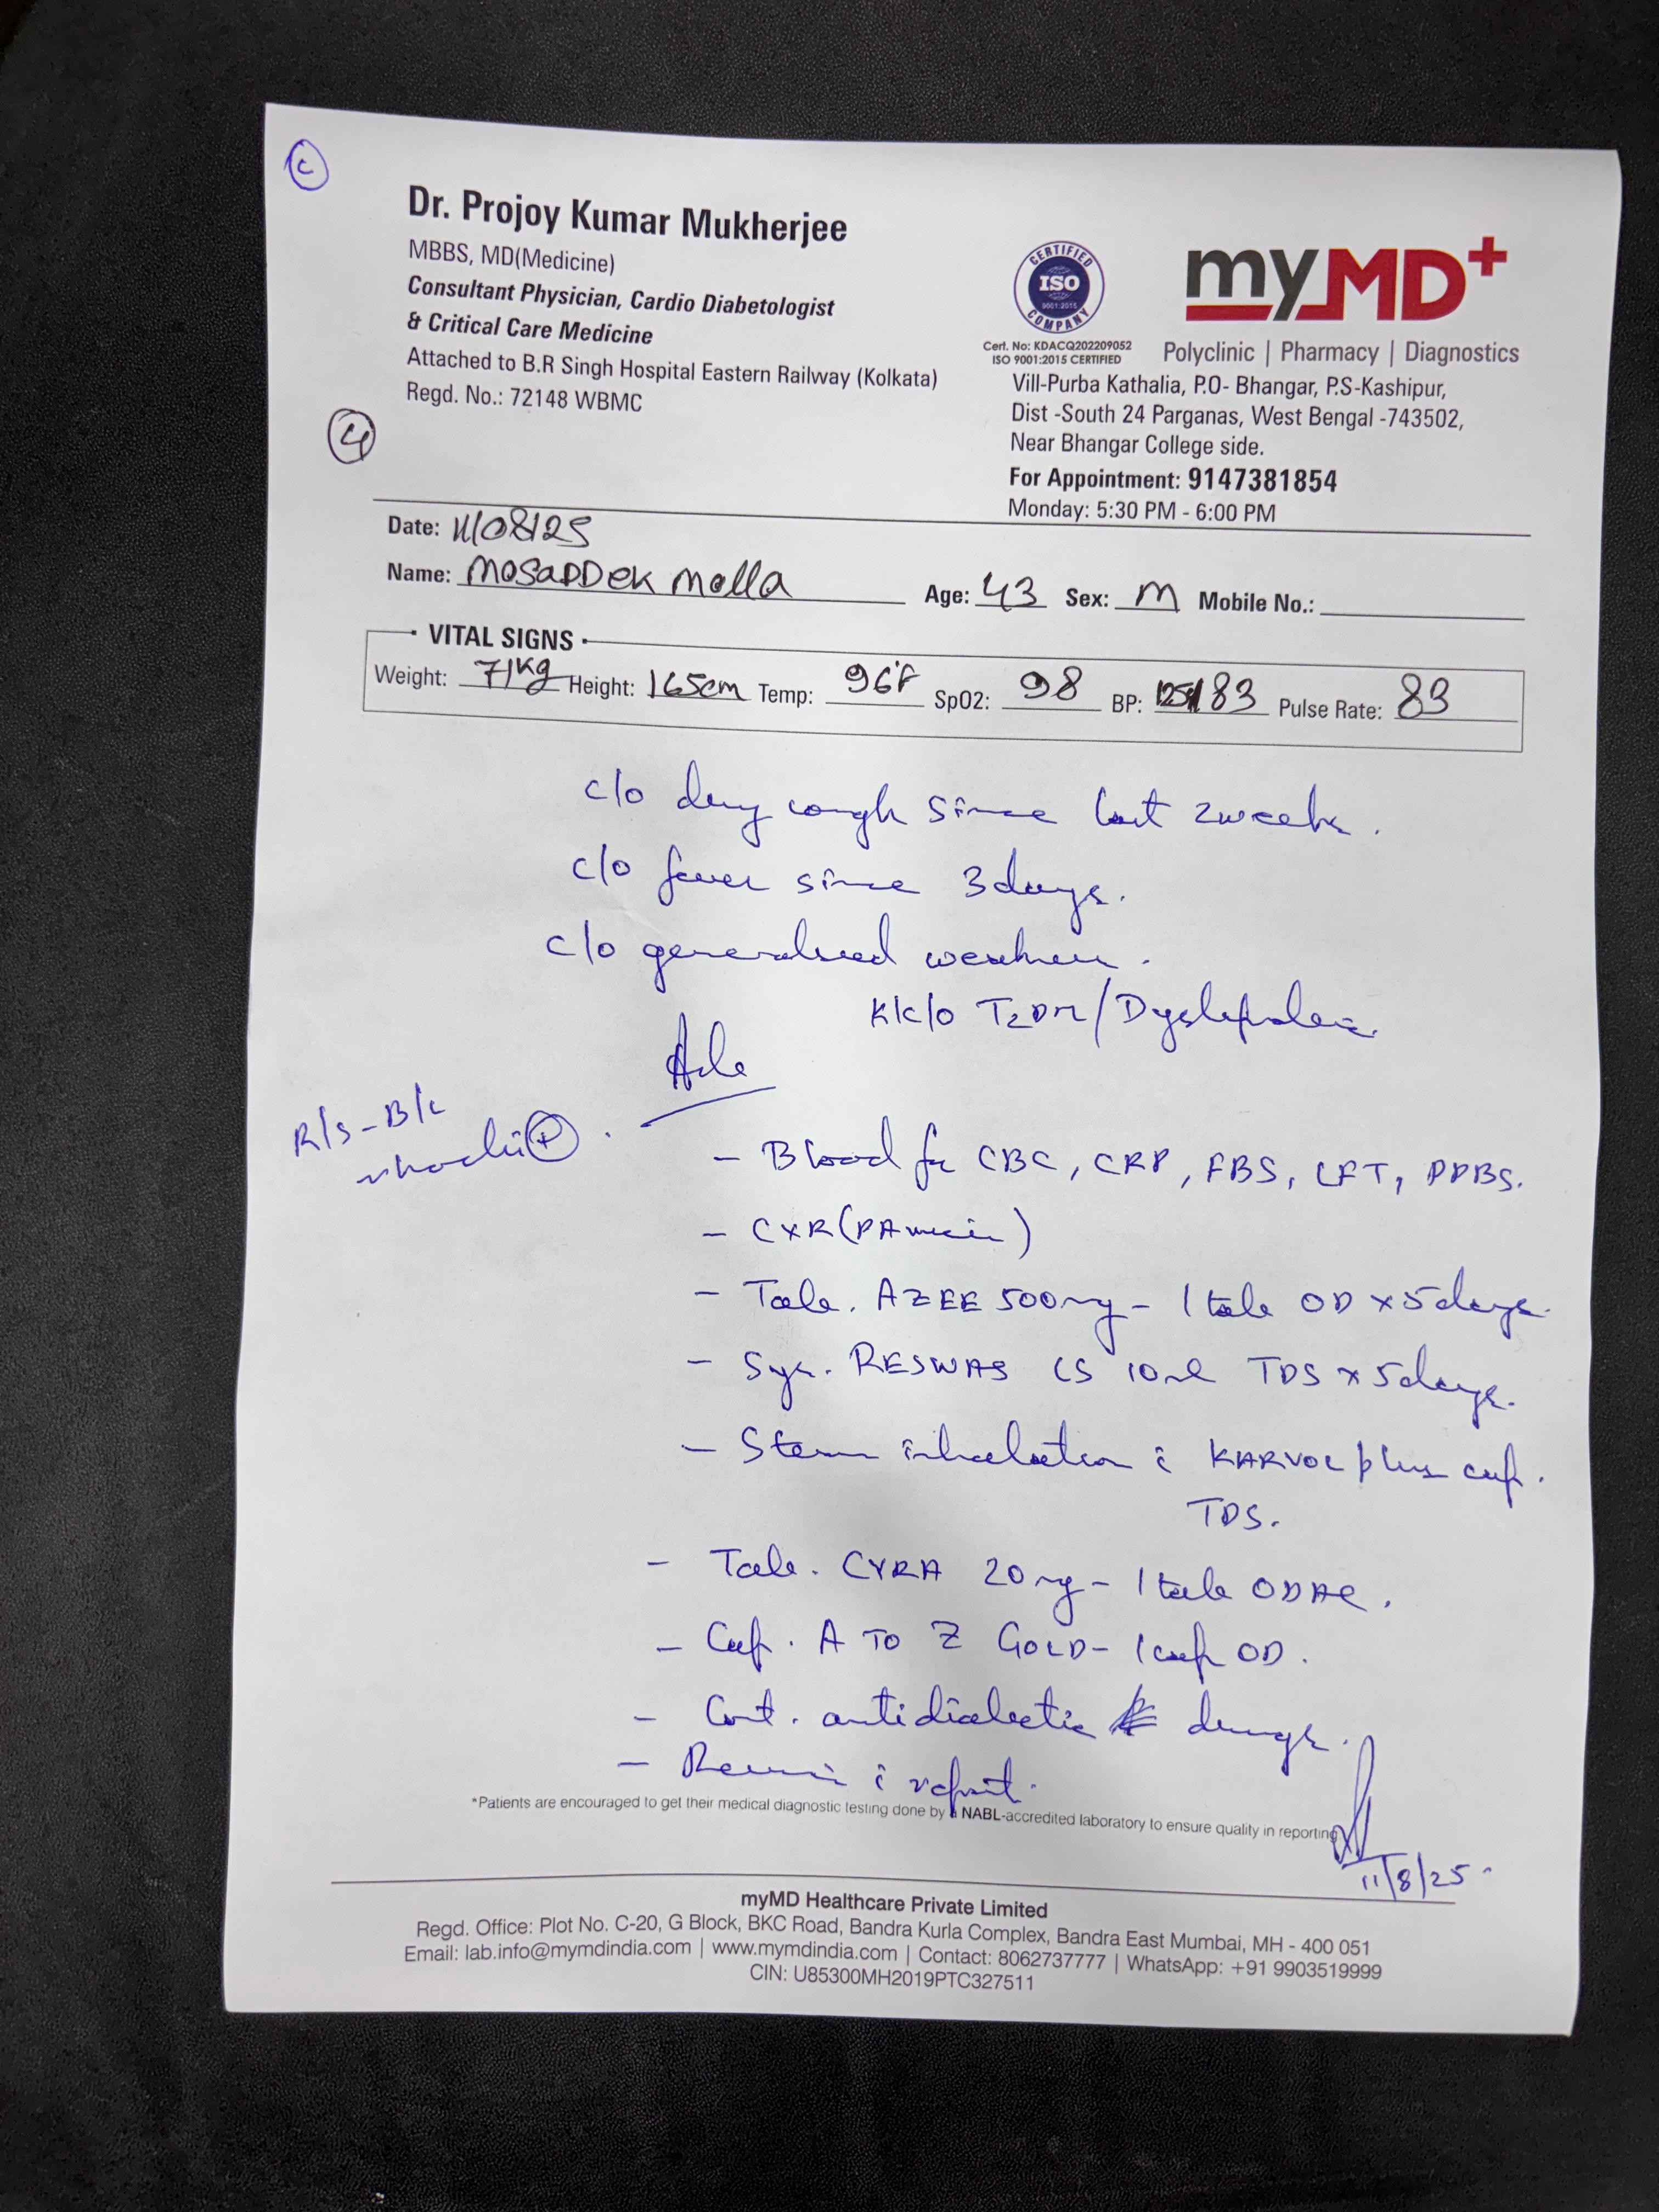 C
Dr. Projoy Kumar Mukherjee
MBBS, MD(Medicine)
Consultant Physician, Cardio Diabetologist
& Critical Care Medicine
Attached to B.R Singh Hospital Eastern Railway (Kolkata)
Regd. No.: 72148 WBMC
4
CERTIFIED
ISO
9001:2015
COMPANY
Cert. No: KDACQ202209052
ISO 9001:2015 CERTIFIED
myMD+
Polyclinic | Pharmacy | Diagnostics
Vill-Purba Kathalia, P.O- Bhangar, P.S-Kashipur,
Dist -South 24 Parganas, West Bengal -743502,
Near Bhangar College side.
For Appointment: 9147381854
Monday: 5:30 PM - 6:00 PM
Date: 11/08/25
Name: MOSADDEK Molla Age: 43 Sex: M Mobile No.:
VITAL SIGNS
Weight: 71Kg Height: 165cm Temp: 96°F SpO2: 98 BP: 125/83 Pulse Rate: 83
c/o dry cough since last 2 weeks.
c/o fever since 3 days.
c/o generalised weakness.
K/c/o T2DM/Dyslipidemia
Adv
R/s - B/L
rhonchi +
- Blood for CBC, CRP, FBS, LFT, PPBS.
- CXR (PA view)
- Tab. AZEE 500mg - 1 tab OD x 5 days.
- Syr. RESWAS CS 10ml TDS x 5 days.
- Steam inhalation c̄ KARVOL plus cap.
TDS.
- Tab. CYRA 20mg - 1 tab OD AC.
- Cap. A TO Z GOLD - 1 cap OD.
- Cont. antidiabetic drugs.
- Review c̄ report.
*Patients are encouraged to get their medical diagnostic testing done by a NABL-accredited laboratory to ensure quality in reporting
11/8/25
myMD Healthcare Private Limited
Regd. Office: Plot No. C-20, G Block, BKC Road, Bandra Kurla Complex, Bandra East Mumbai, MH - 400 051
Email: lab.info@mymdindia.com | www.mymdindia.com | Contact: 8062737777 | WhatsApp: +91 9903519999
CIN: U85300MH2019PTC327511